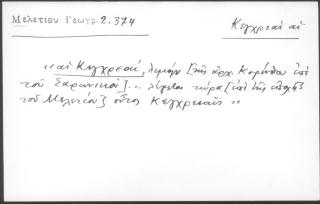 Μελετίου Γεωγρ. 2. 374
Κεγχρεαὶ αἱ
«αἱ Κεγχρεαί, λιμὴν [τῆς ἀρχ. Κορίνθου ἐπὶ
τοῦ Σαρωνικοῦ].. λέγεται τώρα [ἐπὶ τῆς ἐποχῆς
τοῦ Μελετίου] οὕτως Κεγχρεαῖς»